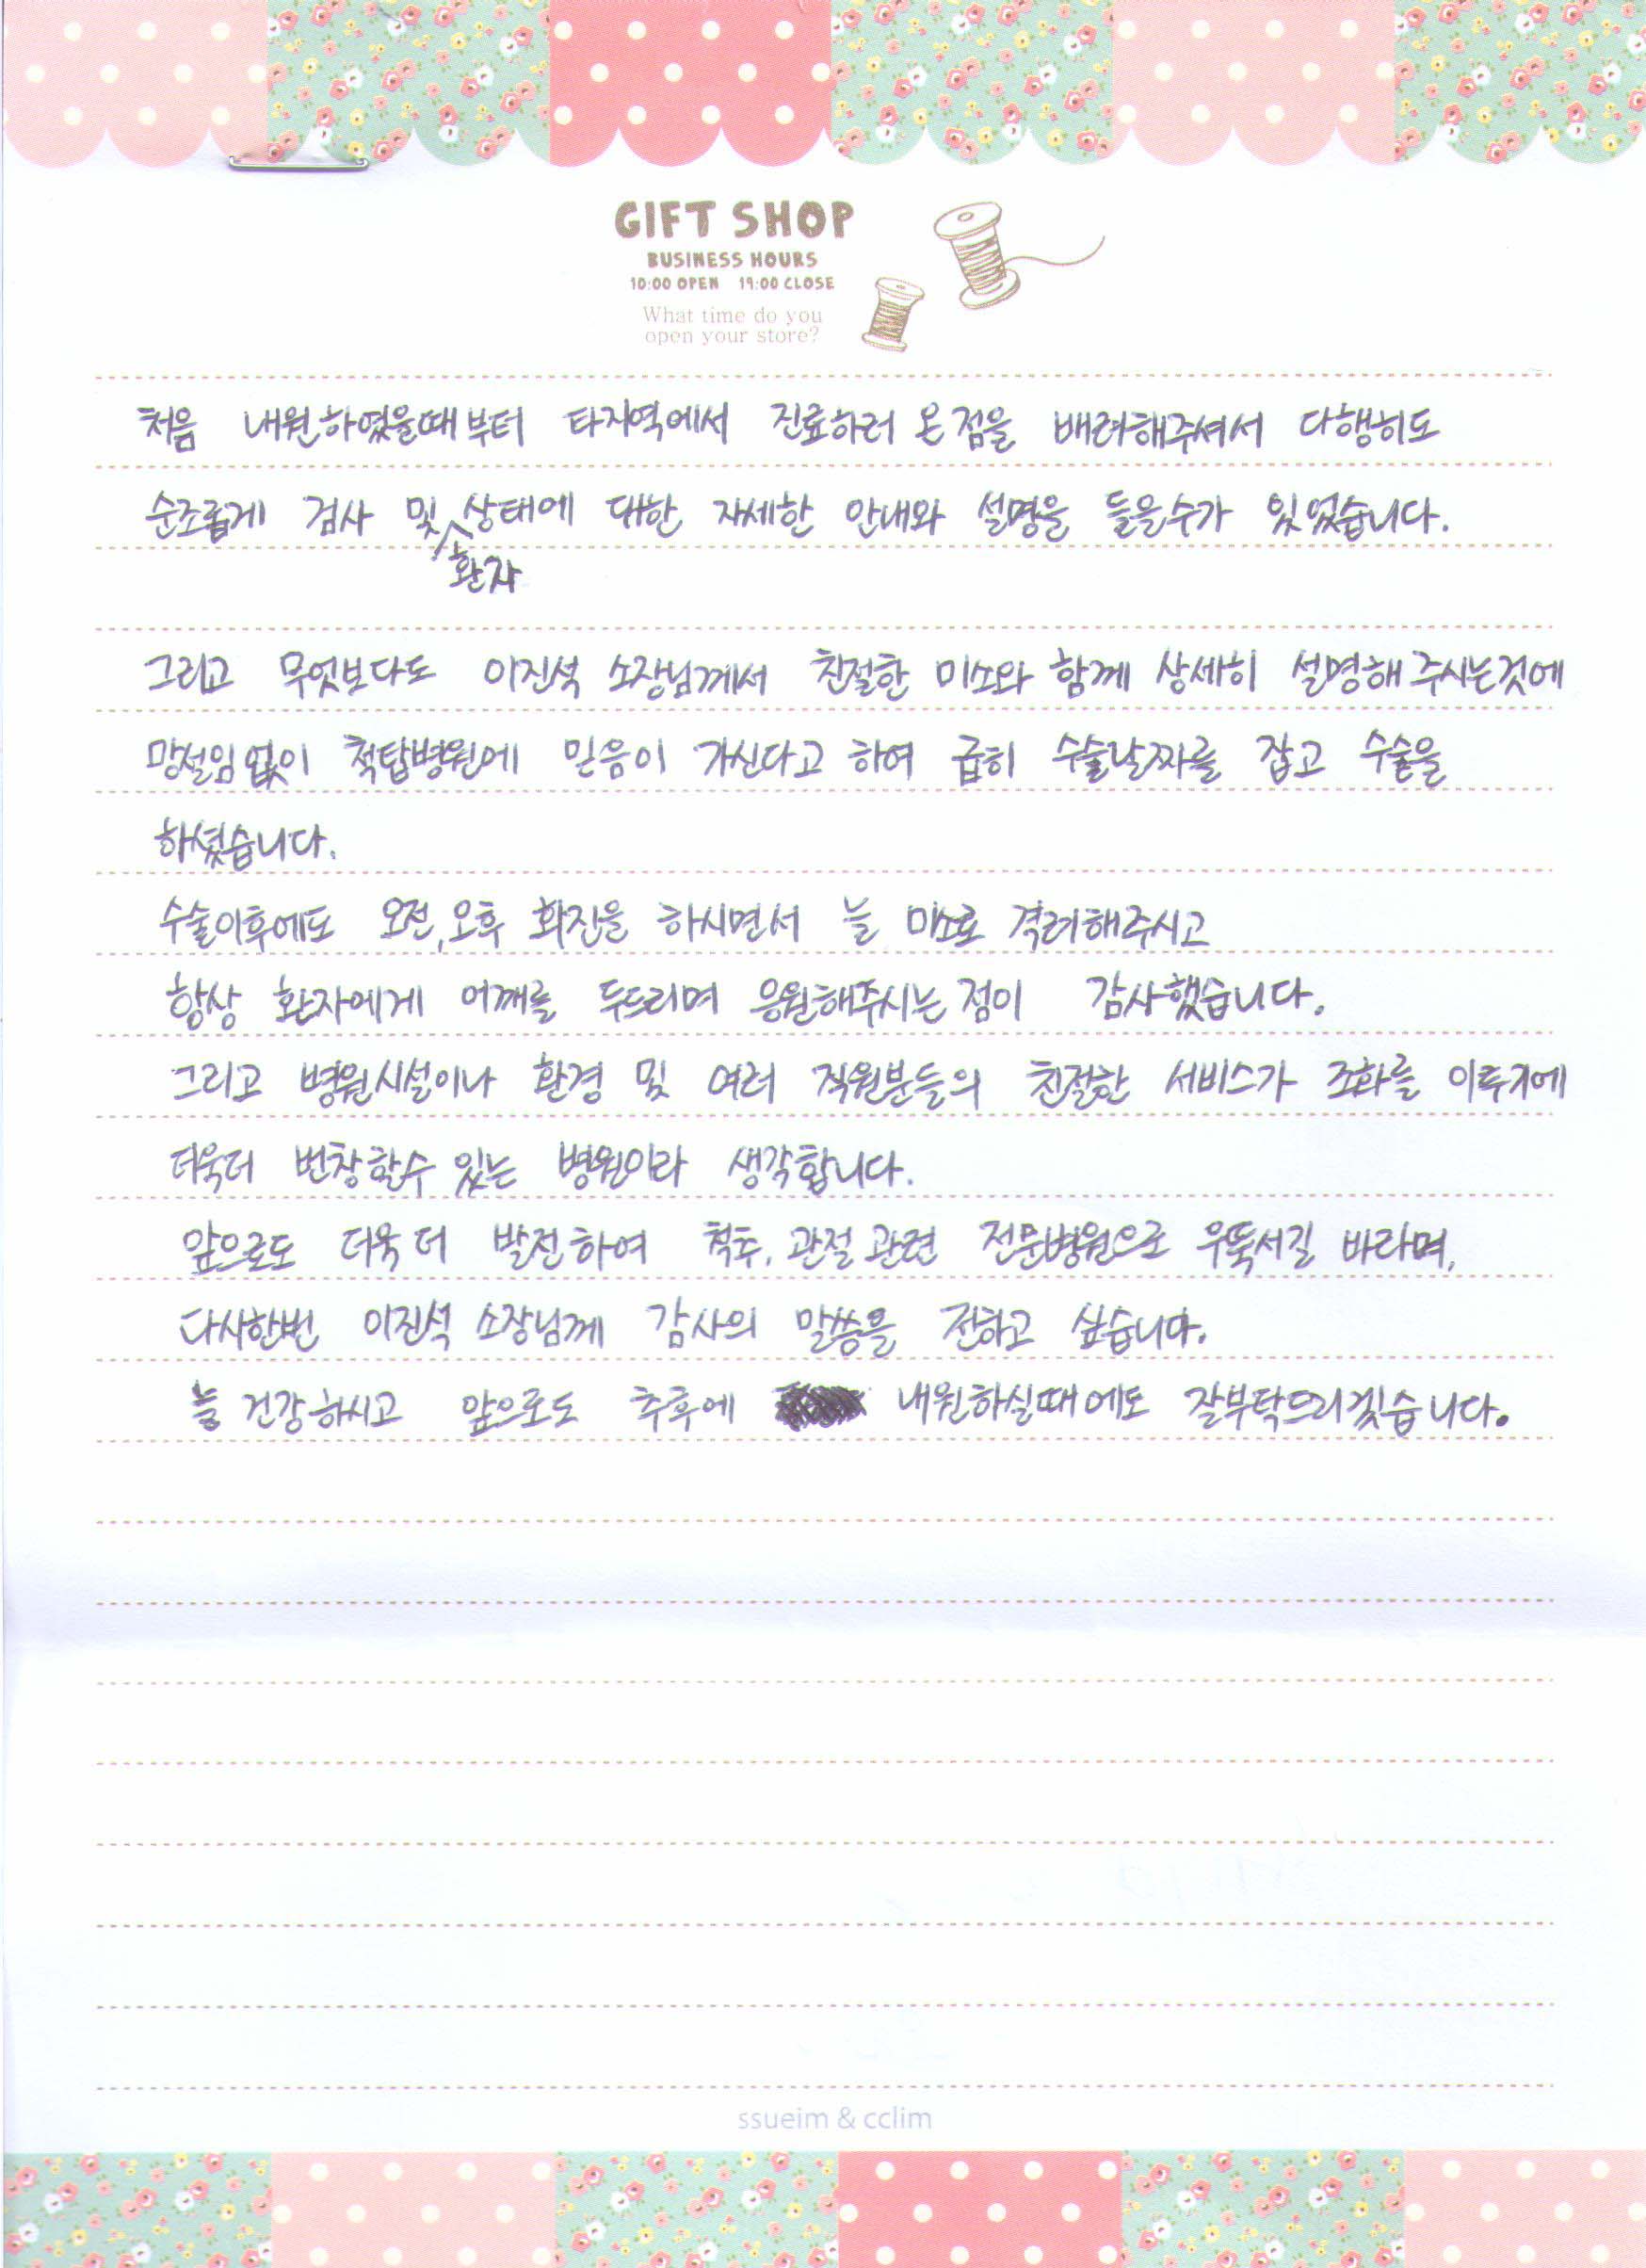 GIFT SHOP
BUSINESS HOURS
10:00 OPEN 19:00 CLOSE
What time do you
open your store?
처음 내원하였을때부터 타지역에서 진료하러 온점을 배려해주셔서 다행히도
순조롭게 검사 및 상태에 대한 자세한 안내와 설명을 들을수가 있었습니다.
환자
그리고 무엇보다도 이진석 소장님께서 친절한 미소와 함께 상세히 설명해주시는것에
망설임없이 척탑병원에 믿음이 가신다고 하여 급히 수술날짜를 잡고 수술을
하셨습니다.
수술이후에도 오전,오후 회진을 하시면서 늘 미소로 격려해주시고
항상 환자에게 어깨를 두드리며 응원해주시는점이 감사했습니다.
그리고 병원시설이나 환경 및 여러 직원분들의 친절한 서비스가 조화를 이루기에
더욱더 번창할수 있는 병원이라 생각합니다.
앞으로도 더욱더 발전하여 척추, 관절관련 전문병원으로 우뚝서길 바라며,
다시한번 이진석 소장님께 감사의 말씀을 전하고 싶습니다.
늘 건강하시고 앞으로도 추후에 내원하실때에도 잘부탁드리겠습니다.
ssueim & cclim